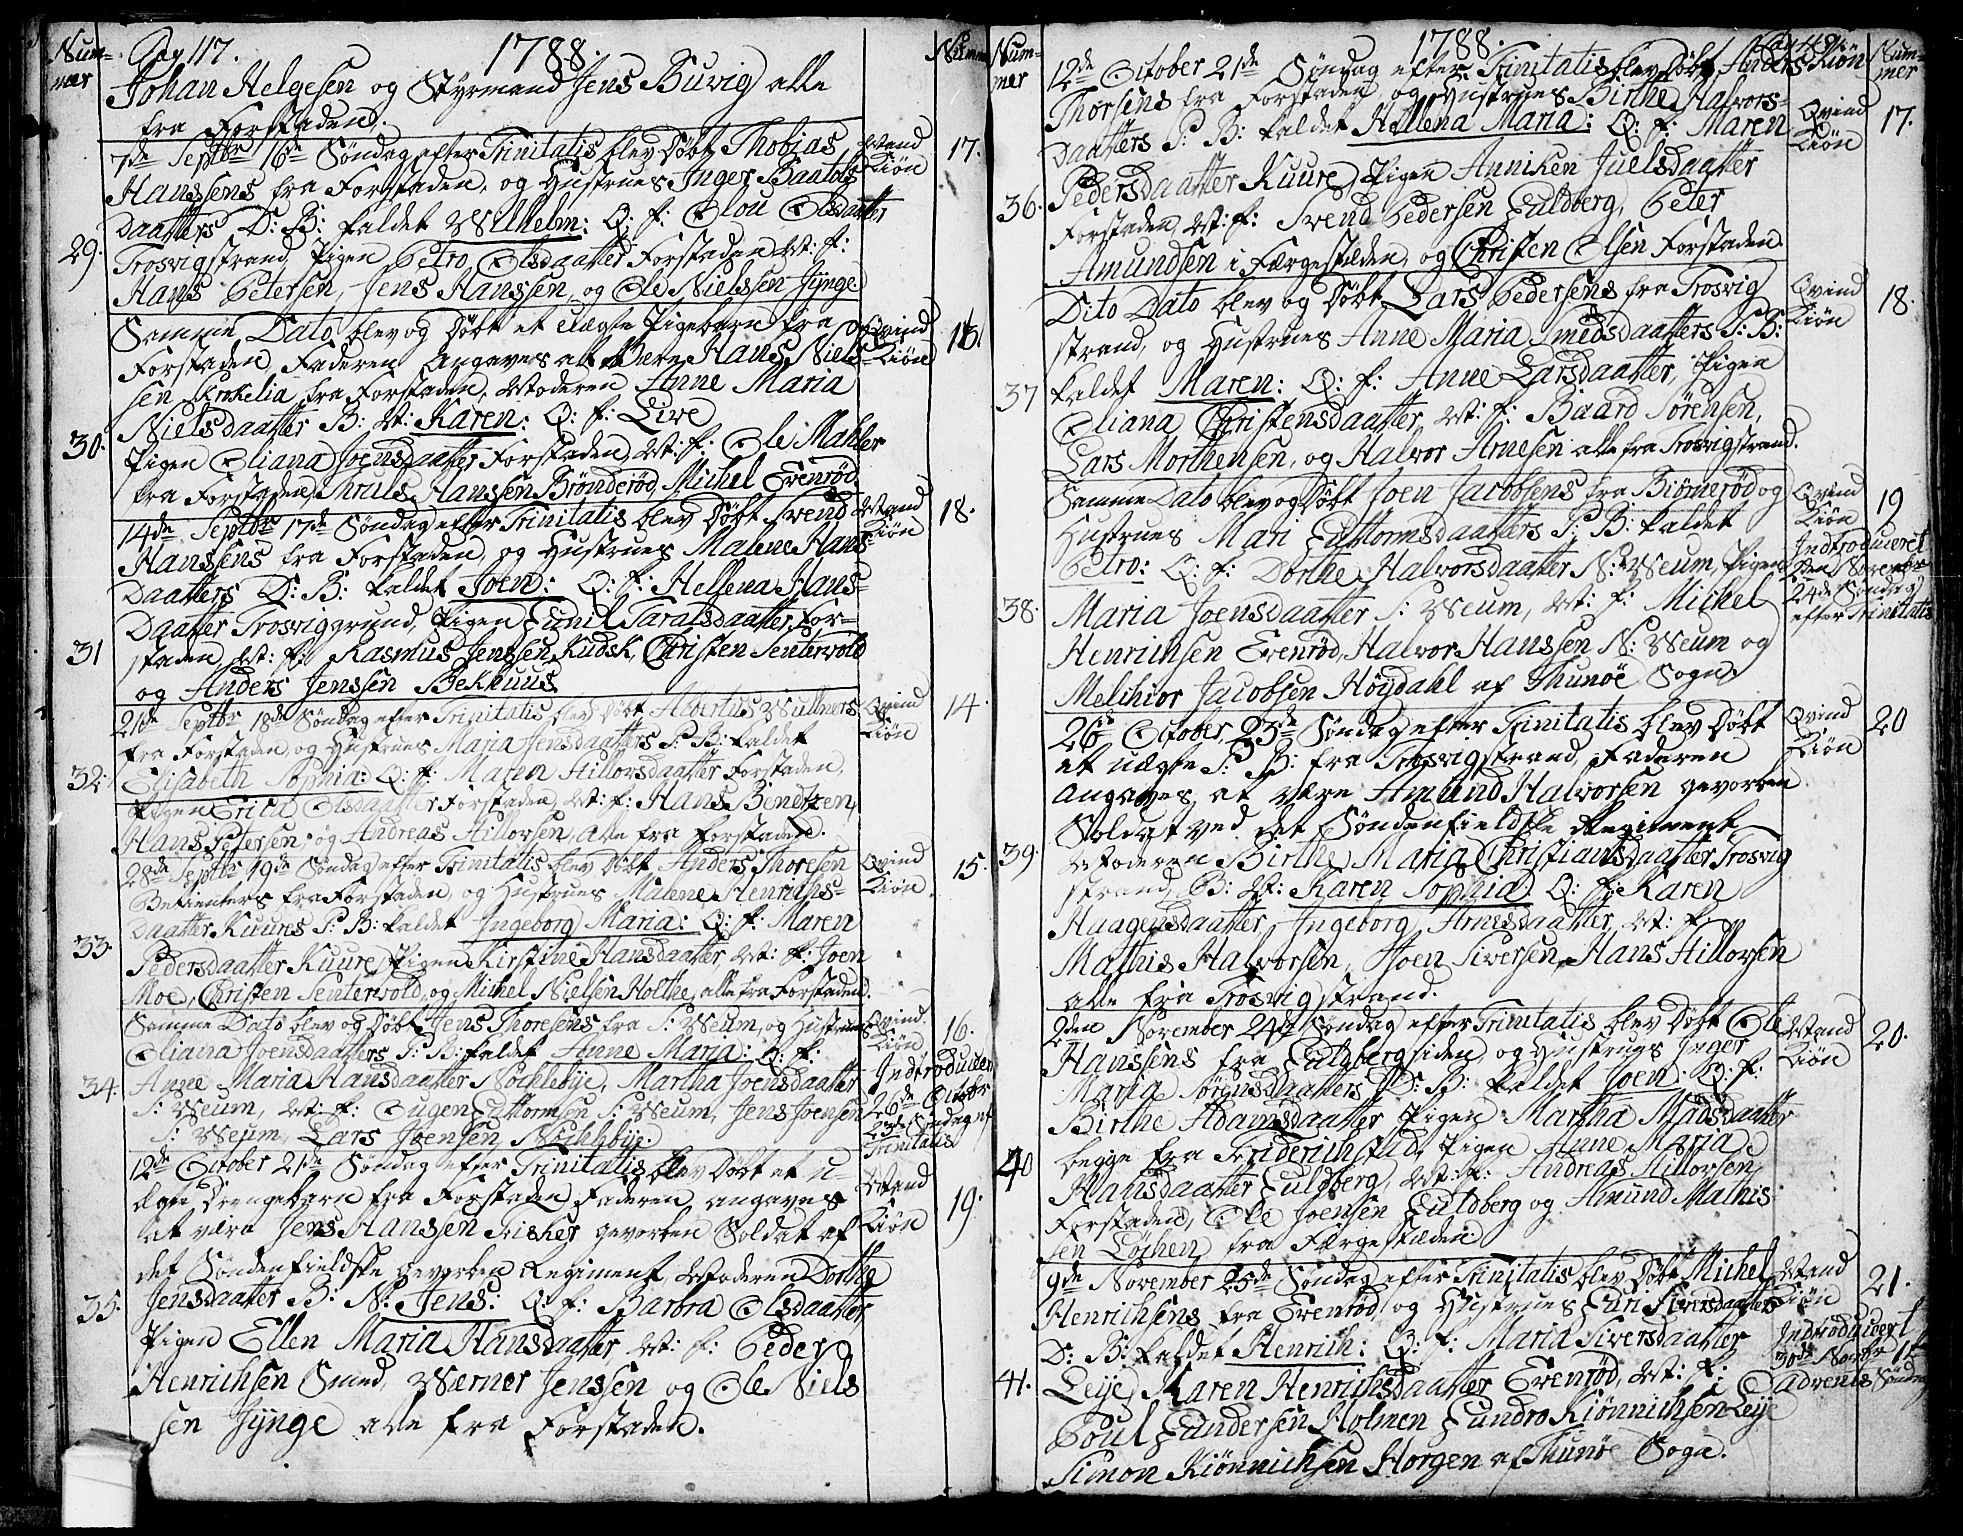 Num-
mer
Pag 117.
1788.
Num-
Johan Helgesen og Styrmand Jens Buvig alle
fra Forstaden.
7de Septbr 16de Søndag efter Trinitatis blev Døbt Thobias
Hanssens fra Forstaden, og Hustrues Inger Baatols
Daatters D: B: kaldet Wilhelm: Q: f: Olou Olsdaatter
29. Trosvigstrand, Pigen Petro Olsdaatter Forstaden M: f:
Hans Petersen, Jens Hanssen, og Ole Nielssen Jÿnge
Mand
Kiøn
17.
Samme Dato blev og Døbt et uægte Pigebarn fra
Forstaden, Faderen Angaves at være Hans Niels-
sen Krokelia fra Forstaden, Moderen Anne Maria
Nielsdaatter B: N: Karen: Q: f: Live
30. Pigen Eliana Joensdaatter Forstaden, M: f: Ole Mahler
fra Forstaden, Thruls Hanssen Brønderød, Michel Evenrød
Qvind
Kiøn
13.
14de Septbr 17de Søndag efter Trinitatis blev Døbt Svend
Hanssens fra Forstaden, og Hustrues Malene Hans-
Daatters D: B: kaldet Joen: Q: f: Hellena Hans-
Daatter Trosviggrund, Pigen Gunil Taralsdaatter For-
31 staden, M: f: Rasmus Jenssen Kudsk, Christen Sentervold
og Anders Jenssen Bekhuus
Mand
Kiøn
18.
21de Septbr 18de Søndag efter Trinitatis blev Døbt Albertus Wullners
fra Forstaden, og Hustrues Maria Jensdaatters P: B: kaldet
32. Elisabeth Sophia: Q: f: Maren Hillorsdaatter Forstaden,
Pigen Erica Olsdaatter Forstaden, M: f: Hans Bendtzen,
Hans Petersen, og Andreas Hillorsen, alle fra Forstaden.
Qvind
Kiøn
14.
28de Septbr 19de Søndag efter Trinitatis blev Døbt Anders Thoresen
Betienters fra Forstaden, og Hustrues Malene Henrichs-
Daatter Kuures P: B: kaldet Ingeborg Maria: Q: f: Maren
33. Pedersdaatter Kuure, Pigen Kirstine Hansdaatter, M: f: Joen
Moe, Christen Sentervold, og Michel Nielsen Holthe, alle fra Forstaden.
Qvind
Kiøn
15.
Samme Dato blev og Døbt Jens Thoresens fra S: Weum, og Hustrues
Eliana Joensdaatters P: B: kaldet Anne Maria: Q: f:
34. Anne Maria Hansdaatter Nøklebÿe, Martha Joensdaatter
S: Weum, M: f: Eugen Guttormsen S: Weum, Jens Joensen
S: Weum, Lars Joensen Nøklebÿe.
Qvind
Kiøn
16.
Indtroducert
26de Octobr
23de Søndag ef
Trinitatis
12de October 21de Søndag efter Trinitatis blev Døbt et u-
ægte Drengebarn fra Forstaden Faderen angaves
at være Jens Hanssen Fisker gevorben Soldat af
det Søndenfieldske Gevorben Regiment, Moderen Dorthe
35. Jensdaatter B: N: Jens: Q: f: Barbra Olsdaatter
Pigen Ellen Maria Hansdaatter, M: f: Peder
Henrichsen Smed, Werner Jenssen og Ole Niels
sen Jÿnge alle fra Forstaden.
Mand
Kiøn
19.
Num-
mer
1788.
Num-
mer
12de October 21de Søndag efter Trinitatis blev Døbt Anders
Thorsens fra Forstaden, og Hustrues Birthe Halvors-
Daatters P: B: kaldet Hellena Maria: Q: f: Maren
Pedersdaatter Kuure, Pigen Anniken Juelsdaatter
36. Forstaden, M: f: Svend Pedersen Guldberg, Peter
Amundsen i Færgestæden, og Christen Olsen Forstaden
Qvind
Kiøn
17.
Dito Dato blev og Døbt Lars Pedersens fra Trosvig
strand, og Hustrues Anne Maria Smedsdaatters P: B:
37 kaldet Maren: Q: f: Anne Larsdaatter, Pigen
Eliana Christensdaatter, M: f: Baard Sørensen,
Lars Morthensen, og Halvor Arnesen alle fra Trosvigstrand.
Qvind
Kiøn
18.
Samme Dato blev og Døbt Joen Jacobsens fra Biørnerød og
Hustrues Mari Guttormsdaatters P: B: kaldet
Petro: Q: f: Dorthe Halvorsdaatter N: Weum, Pigen
38. Maria Joensdaatter S: Weum, M: f: Michel
Henrichsen Evenrød, Halvor Hanssen N: Weum og
Melchior Jacobsen Høÿdahl af Thunøe Sogn.
Qvind
Kiøn
19
Indtroduceret
2den Novembr
24de Søndag
efter Trinitatis
26de October 23de Søndag efter Trinitatis blev Døbt
et uægte P: B: fra Trosvigstrand, Faderen
Angaves at være Amund Halvorsen gevorben
Soldat ved det Søndenfieldske Regiment
39. Moderen Birthe Maria Christiansdaatter Trosvig
strand, B: N: Karen Sophia: Q: f: Karen
Haagensdaatter, Ingeborg Arnesdaatter, M: f:
Mathis Halvorsen, Joen Siversen, Hans Hillorsen
alle fra Trosvigstrand.
Qvind
Kiøn
20
2den November 24de Søndag efter Trinitatis blev Døbt Ole
Hanssens fra Guldbergsiden, og Hustrues Inger
Maria Sørensdaatters D: B: kaldet Joen: Q: f:
Birthe Adamsdaatter Pigen Martha Madsdaatter
40 begge fra Friderichstad, Pigen Anne Maria
Hansdaatter Guldberg, M: f: Andreas Hillorsen
Forstaden, Ole Joensen Guldberg og Amund Mathis
sen Løchen fra Færgestæden
Mand
Kiøn
20.
9de November 25de Søndag efter Trinitatis blev Døbt Michel
Henrichsens fra Evenrød, og Hustrues Guri Siversdaatters
D: B: kaldet Henrich: Q: f: Maria Siversdaatter
41. Leÿe, Maren Henrichsdaatter Evenrød, M: f:
Poul Gundersen Holmen Gundro Kiønnichsen Leÿe
Simon Kiønnichsen Horgen af Thunøe Sogn.
Mand
Kiøn
21.
Indtroducert
30de Novbr 1te
Advents Søndag